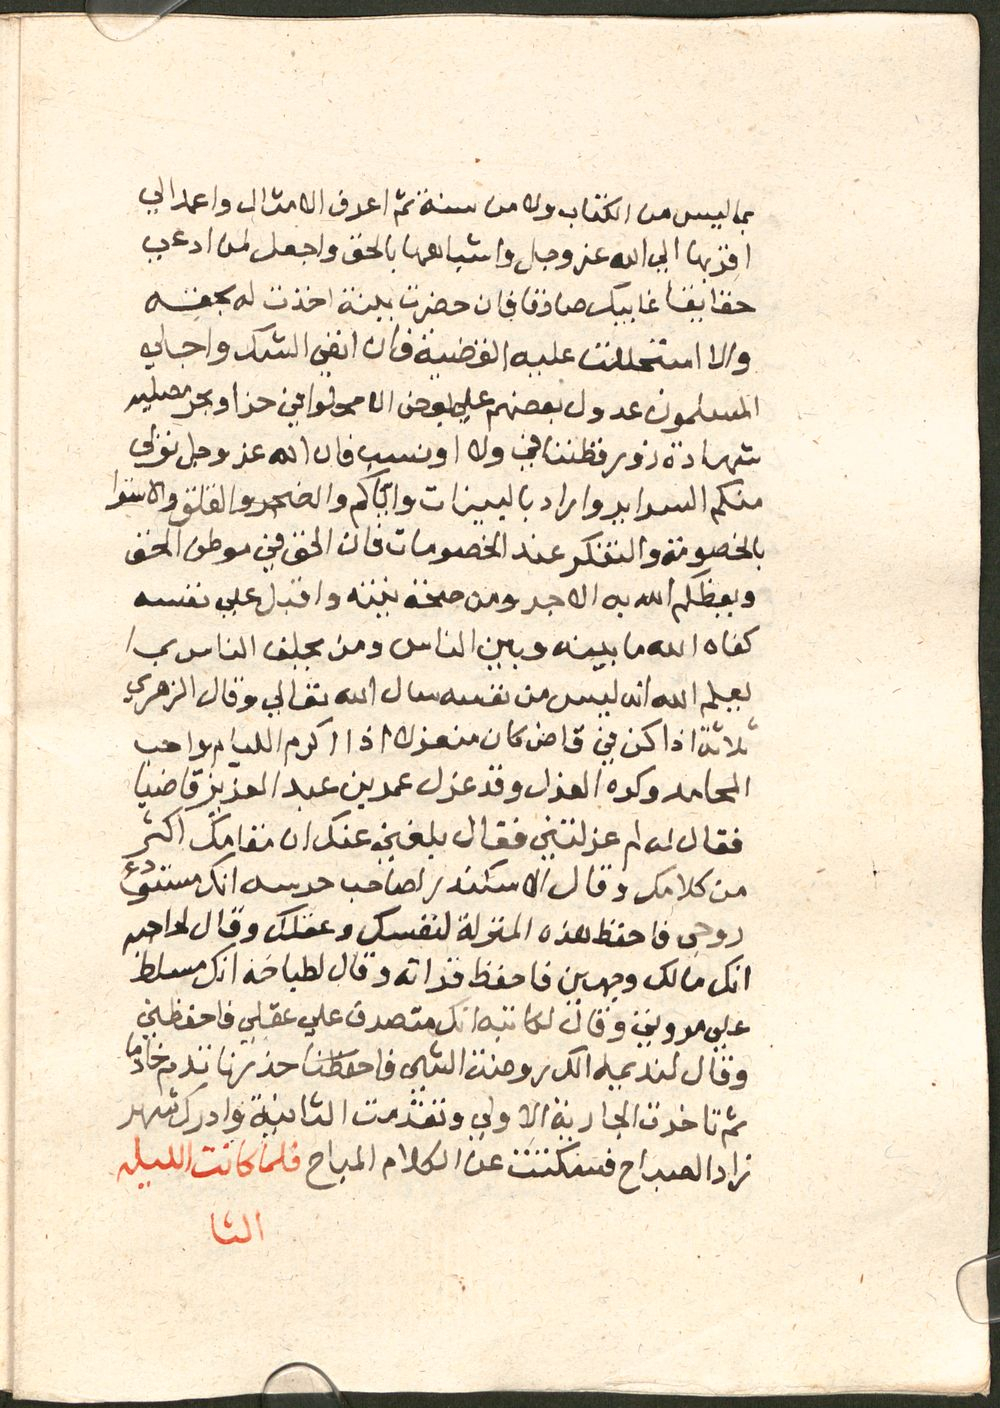 بما ليس من الكتاب ولا من سنة ثم اعرف الامثال واعمد الي
اقربها الي الله عز وجل واشباهها بالحق واجعل لمن ادعي
حقا بقا غاييك صادقا فان حضرت بينة اخذت له بحقه
والا استحللت عليه القضية فان انفي الشك واجلي
المسلمون عدول بعضهم علي بعض الا مجلودا في حد او مجر
شهادة زور وظنينا في ولا او نسب فان الله عز وجل تولي
منكم السراير وادراد بالبينات واياكم والضجر والقلق والاستوا
بالخصومة والتنكر عند الخصومات فان الحق في موطن الحق
ويعظكم الله به الاجر ومن صحة نيته واقبل علي نفسه
كفاه الله ما بينه وبين الناس ومن يحلف الناس بما
يعلم الله انه ليس من نفسه سال الله تعالي وقال الزهري
ثلاثة اذا كن في قاض كان منعزلا اذا اكرم الليام واحب
المحامد وكره العزل وقد عزل عمر بن عبد العزيز قاضيا
فقال له لم عزلتني فقال بلغني عنك ان مقامك اكثر
من كلامك وقال الاسكندر لصاحب حرسه انك مستودع
روحي فاحفظ هذه المنزلة لنفسك وعقلك وقال لحاجبه
انك مالك وجهين فاحفظ قراته وقال لطباخه انك مسلط
علي مروتي وقال لكاتبه انك متصدق علي عقلي فاحفظني
وقال لنديمه انك روضة الشي فاحفظنا حذرها تندم خادما
ثم تاخرت الجارية الاولي وتقدمت الثانية وادرك شهر
زاد الصباح فسكتت عن الكلام المباح فلما كانت الليله
الثا